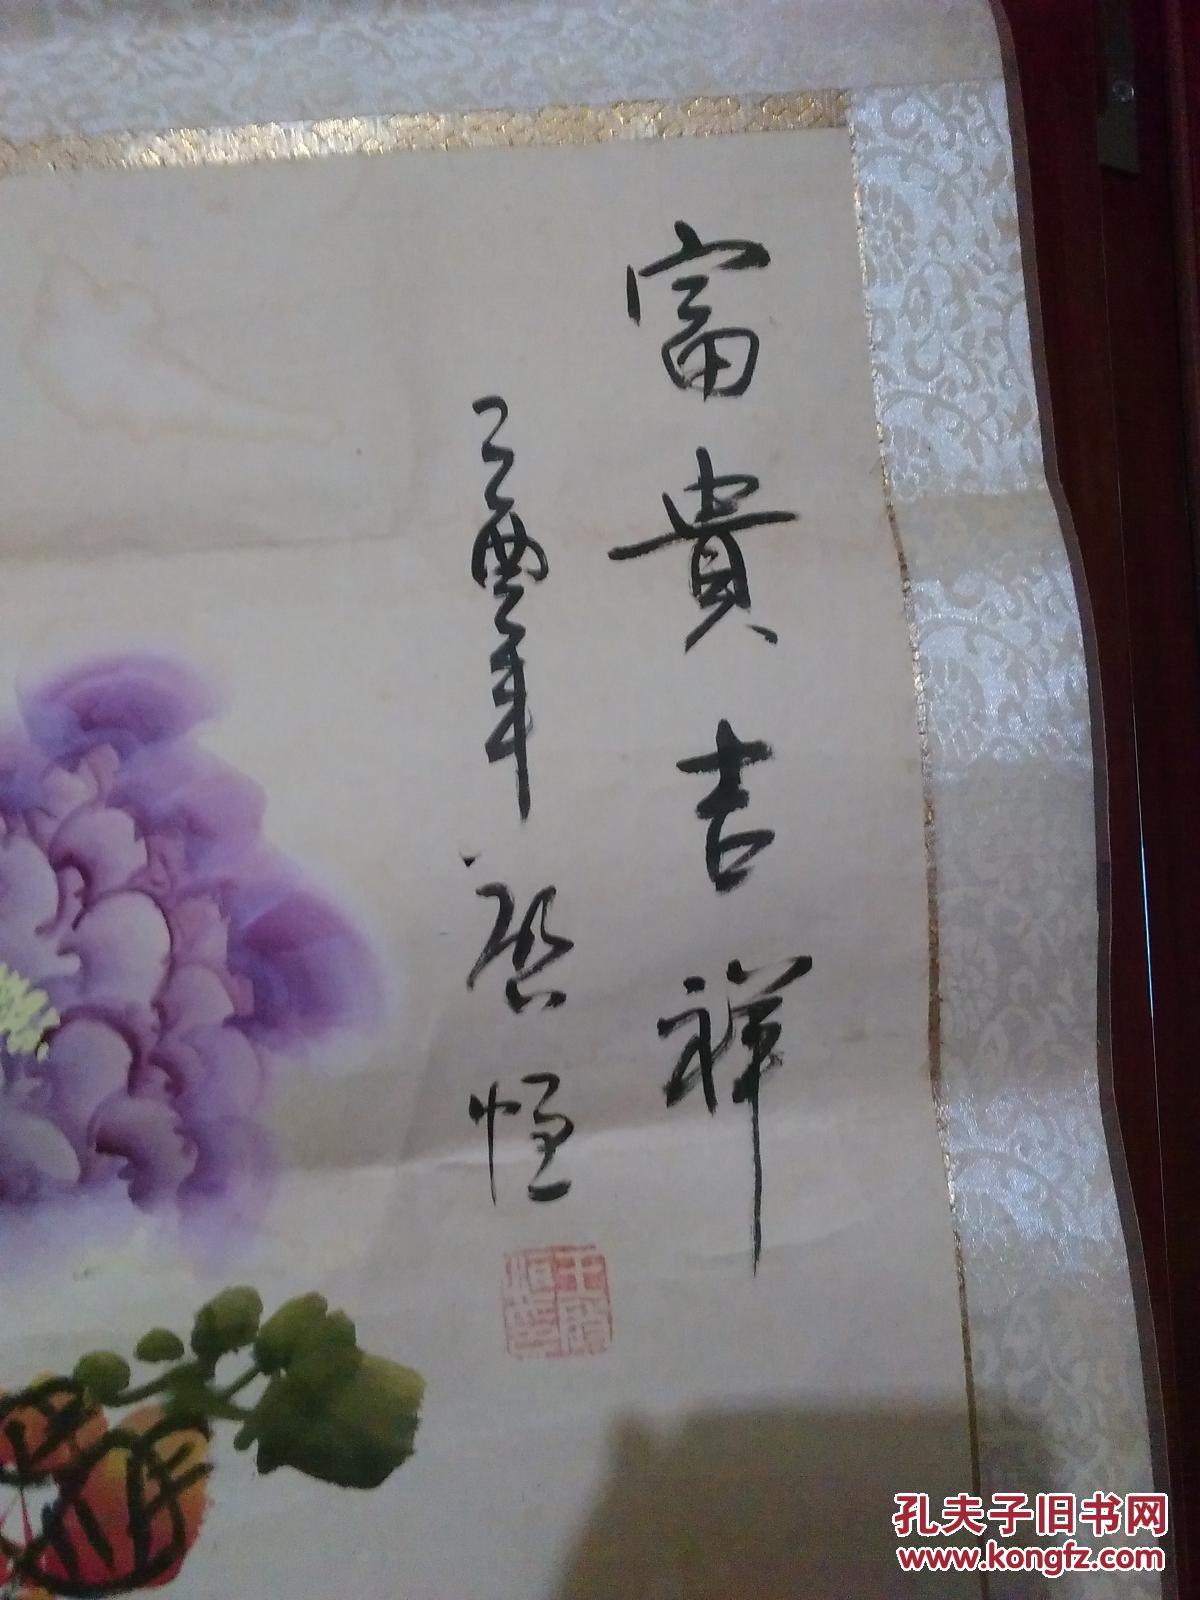 富貴吉祥
乙酉年启恒
孔夫子旧书网
www.kongfz.com